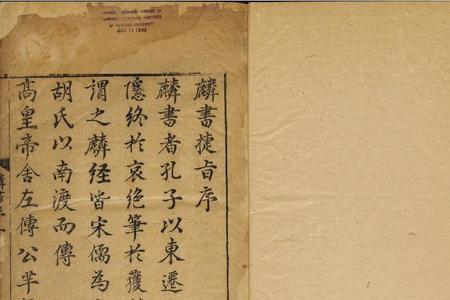 CHINESE-JAPANESE LIBRARY OF
HARVARD-YENCHING INSTITUTE
AT HARVARD UNIVERSITY
麟書捷旨序
麟書者孔子以東遷
隱終於哀絕筆於獲
謂之麟經皆宋儒為
胡氏以南渡而傳
高皇帝舍左傳公羊